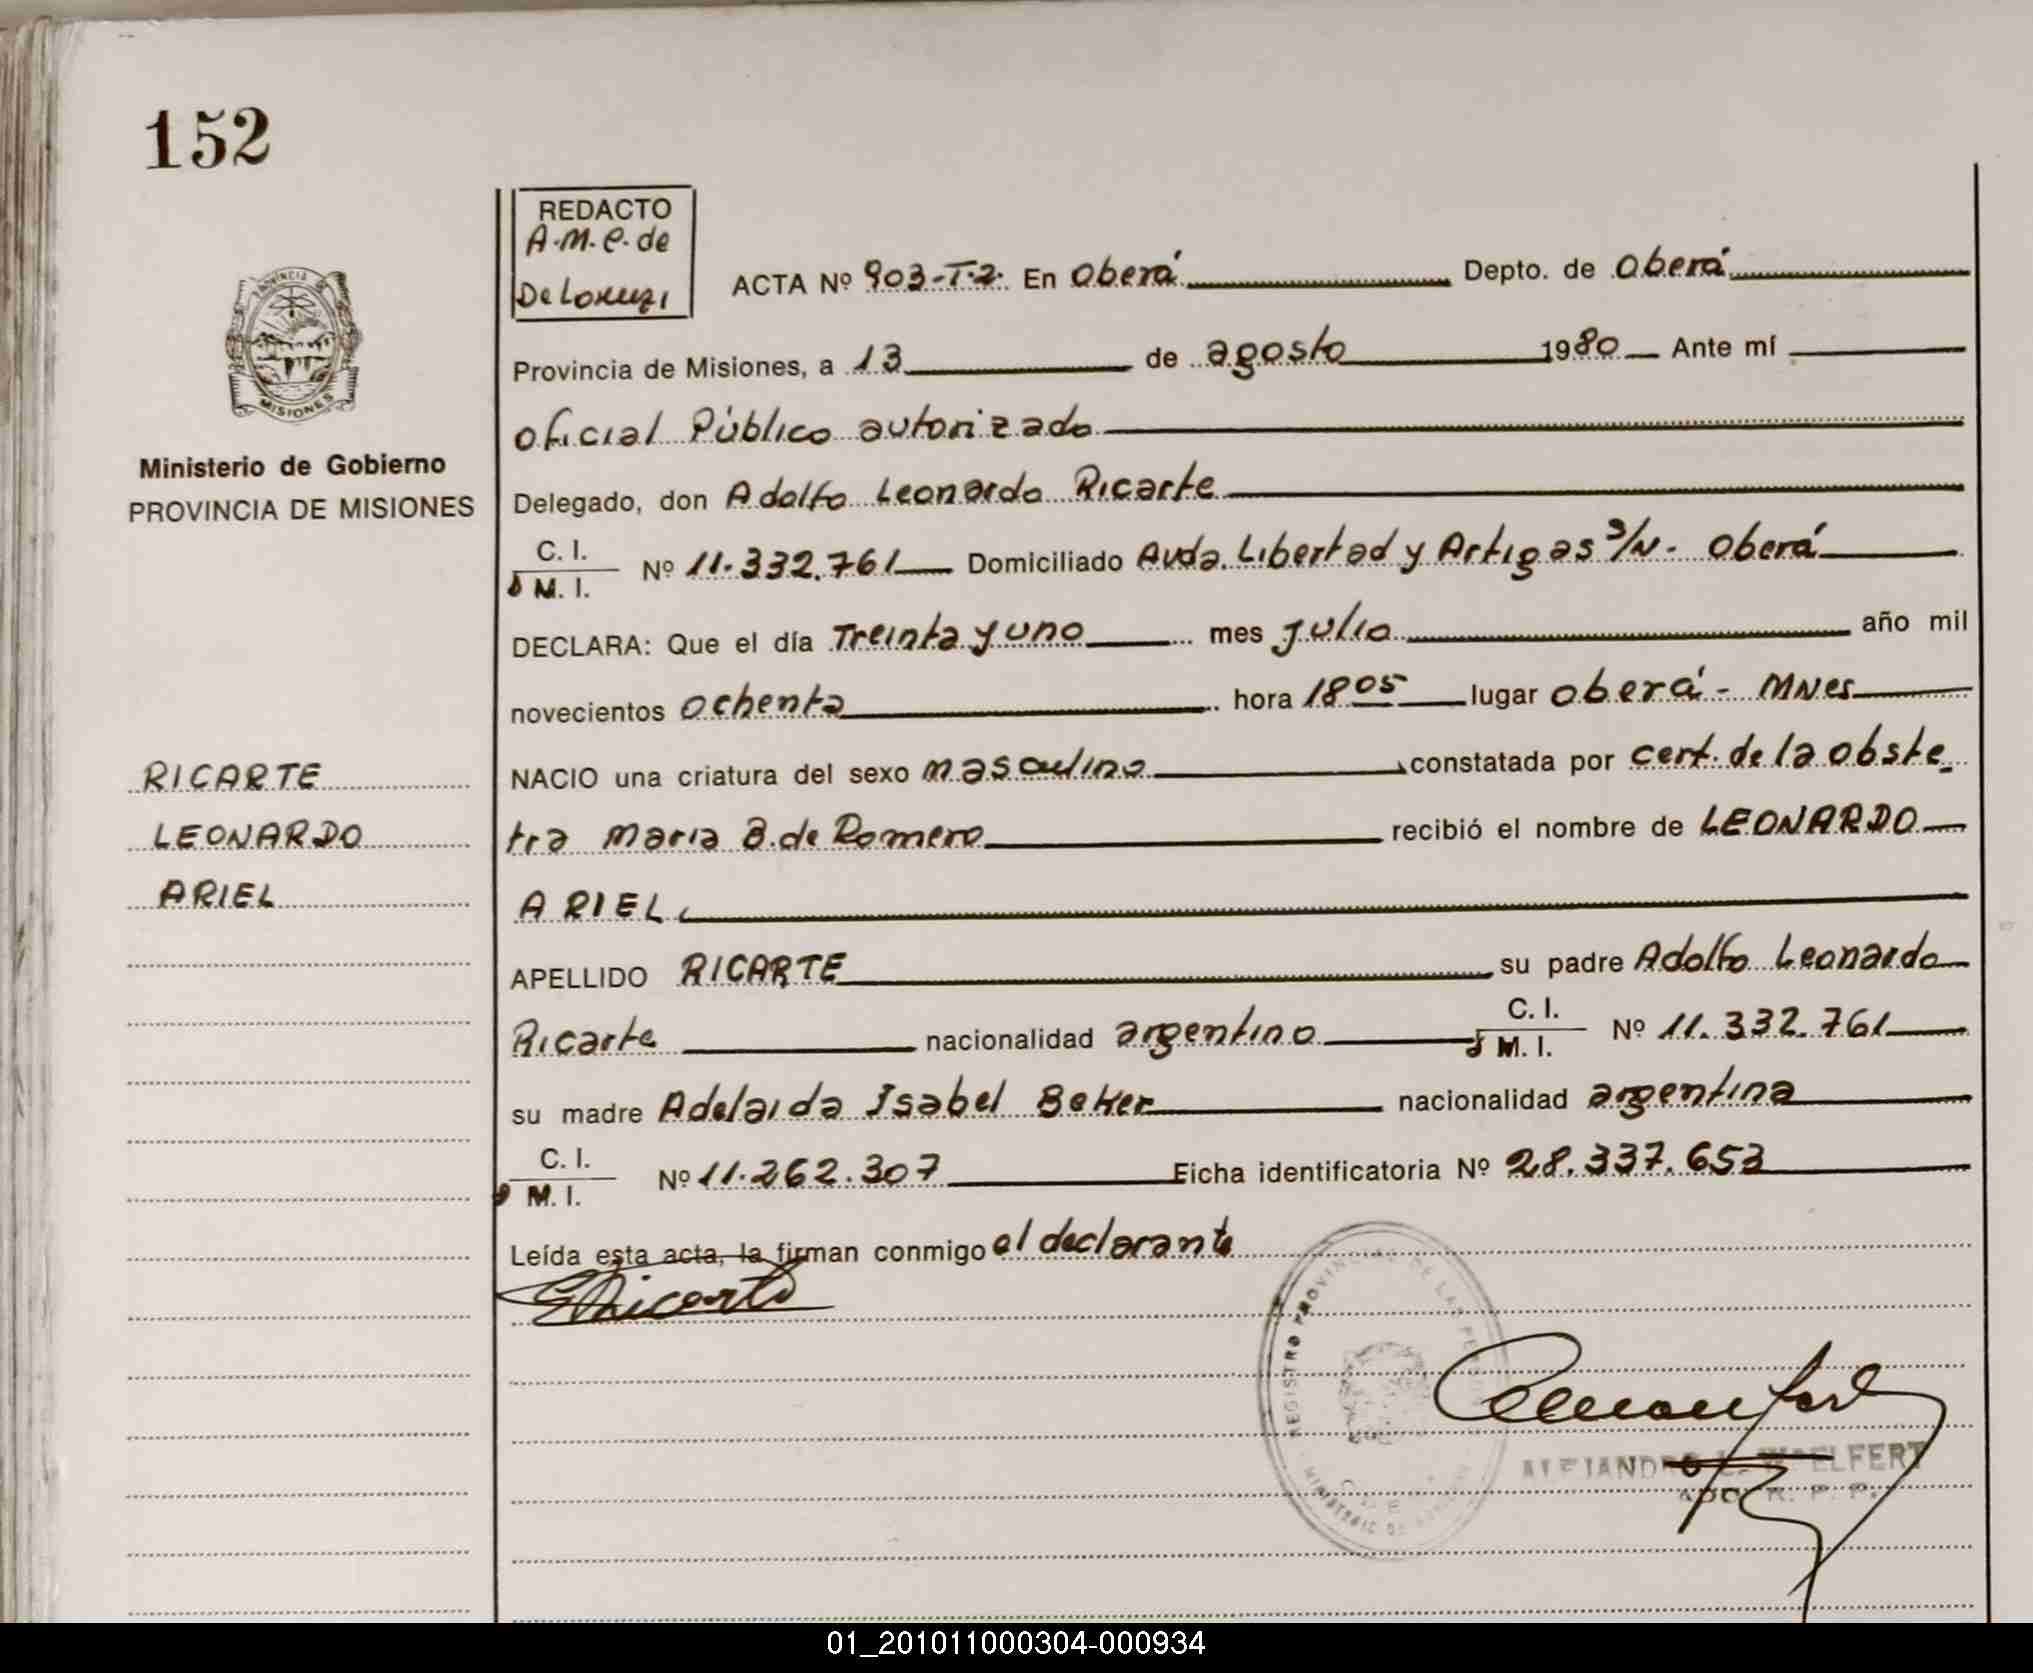 152
REDACTO
A.M.C. de
De Lorenzi
ACTA Nº 903-T.2. En Oberá Depto. de Oberá
Provincia de Misiones, a 13 de agosto 1980 Ante mí
Oficial Público autorizado
Delegado, don Adolfo Leonardo Ricarte
C. I.
M. I.
Nº 11.332.761 Domiciliado Avda. Libertad y Artigas S/N- Oberá
DECLARA: Que el día Treinta y uno mes Julio año mil
novecientos ochenta hora 18 05 lugar Oberá - Mnes
NACIO una criatura del sexo masculino constatada por cert. de la obste_
tra Maria B. de Romero recibió el nombre de LEONARDO
ARIEL
APELLIDO RICARTE su padre Adolfo Leonardo
Ricarte nacionalidad argentino C. I. M. I. Nº 11.332.761
su madre Adelaida Isabel Beker nacionalidad argentina
C. I.
M. I.
Nº 11.262.307 Ficha identificatoria Nº 28.337.653
Leída esta acta, la firman conmigo el declarante
Ricarte
PROVINCIA
MISIONES
Ministerio de Gobierno
PROVINCIA DE MISIONES
RICARTE
LEONARDO
ARIEL
REGISTRO PROVINCIAL DE LAS
MINISTERIO DE
ALEJANDRO L. WOELFERT
R. P. P.
01_201011000304-000934